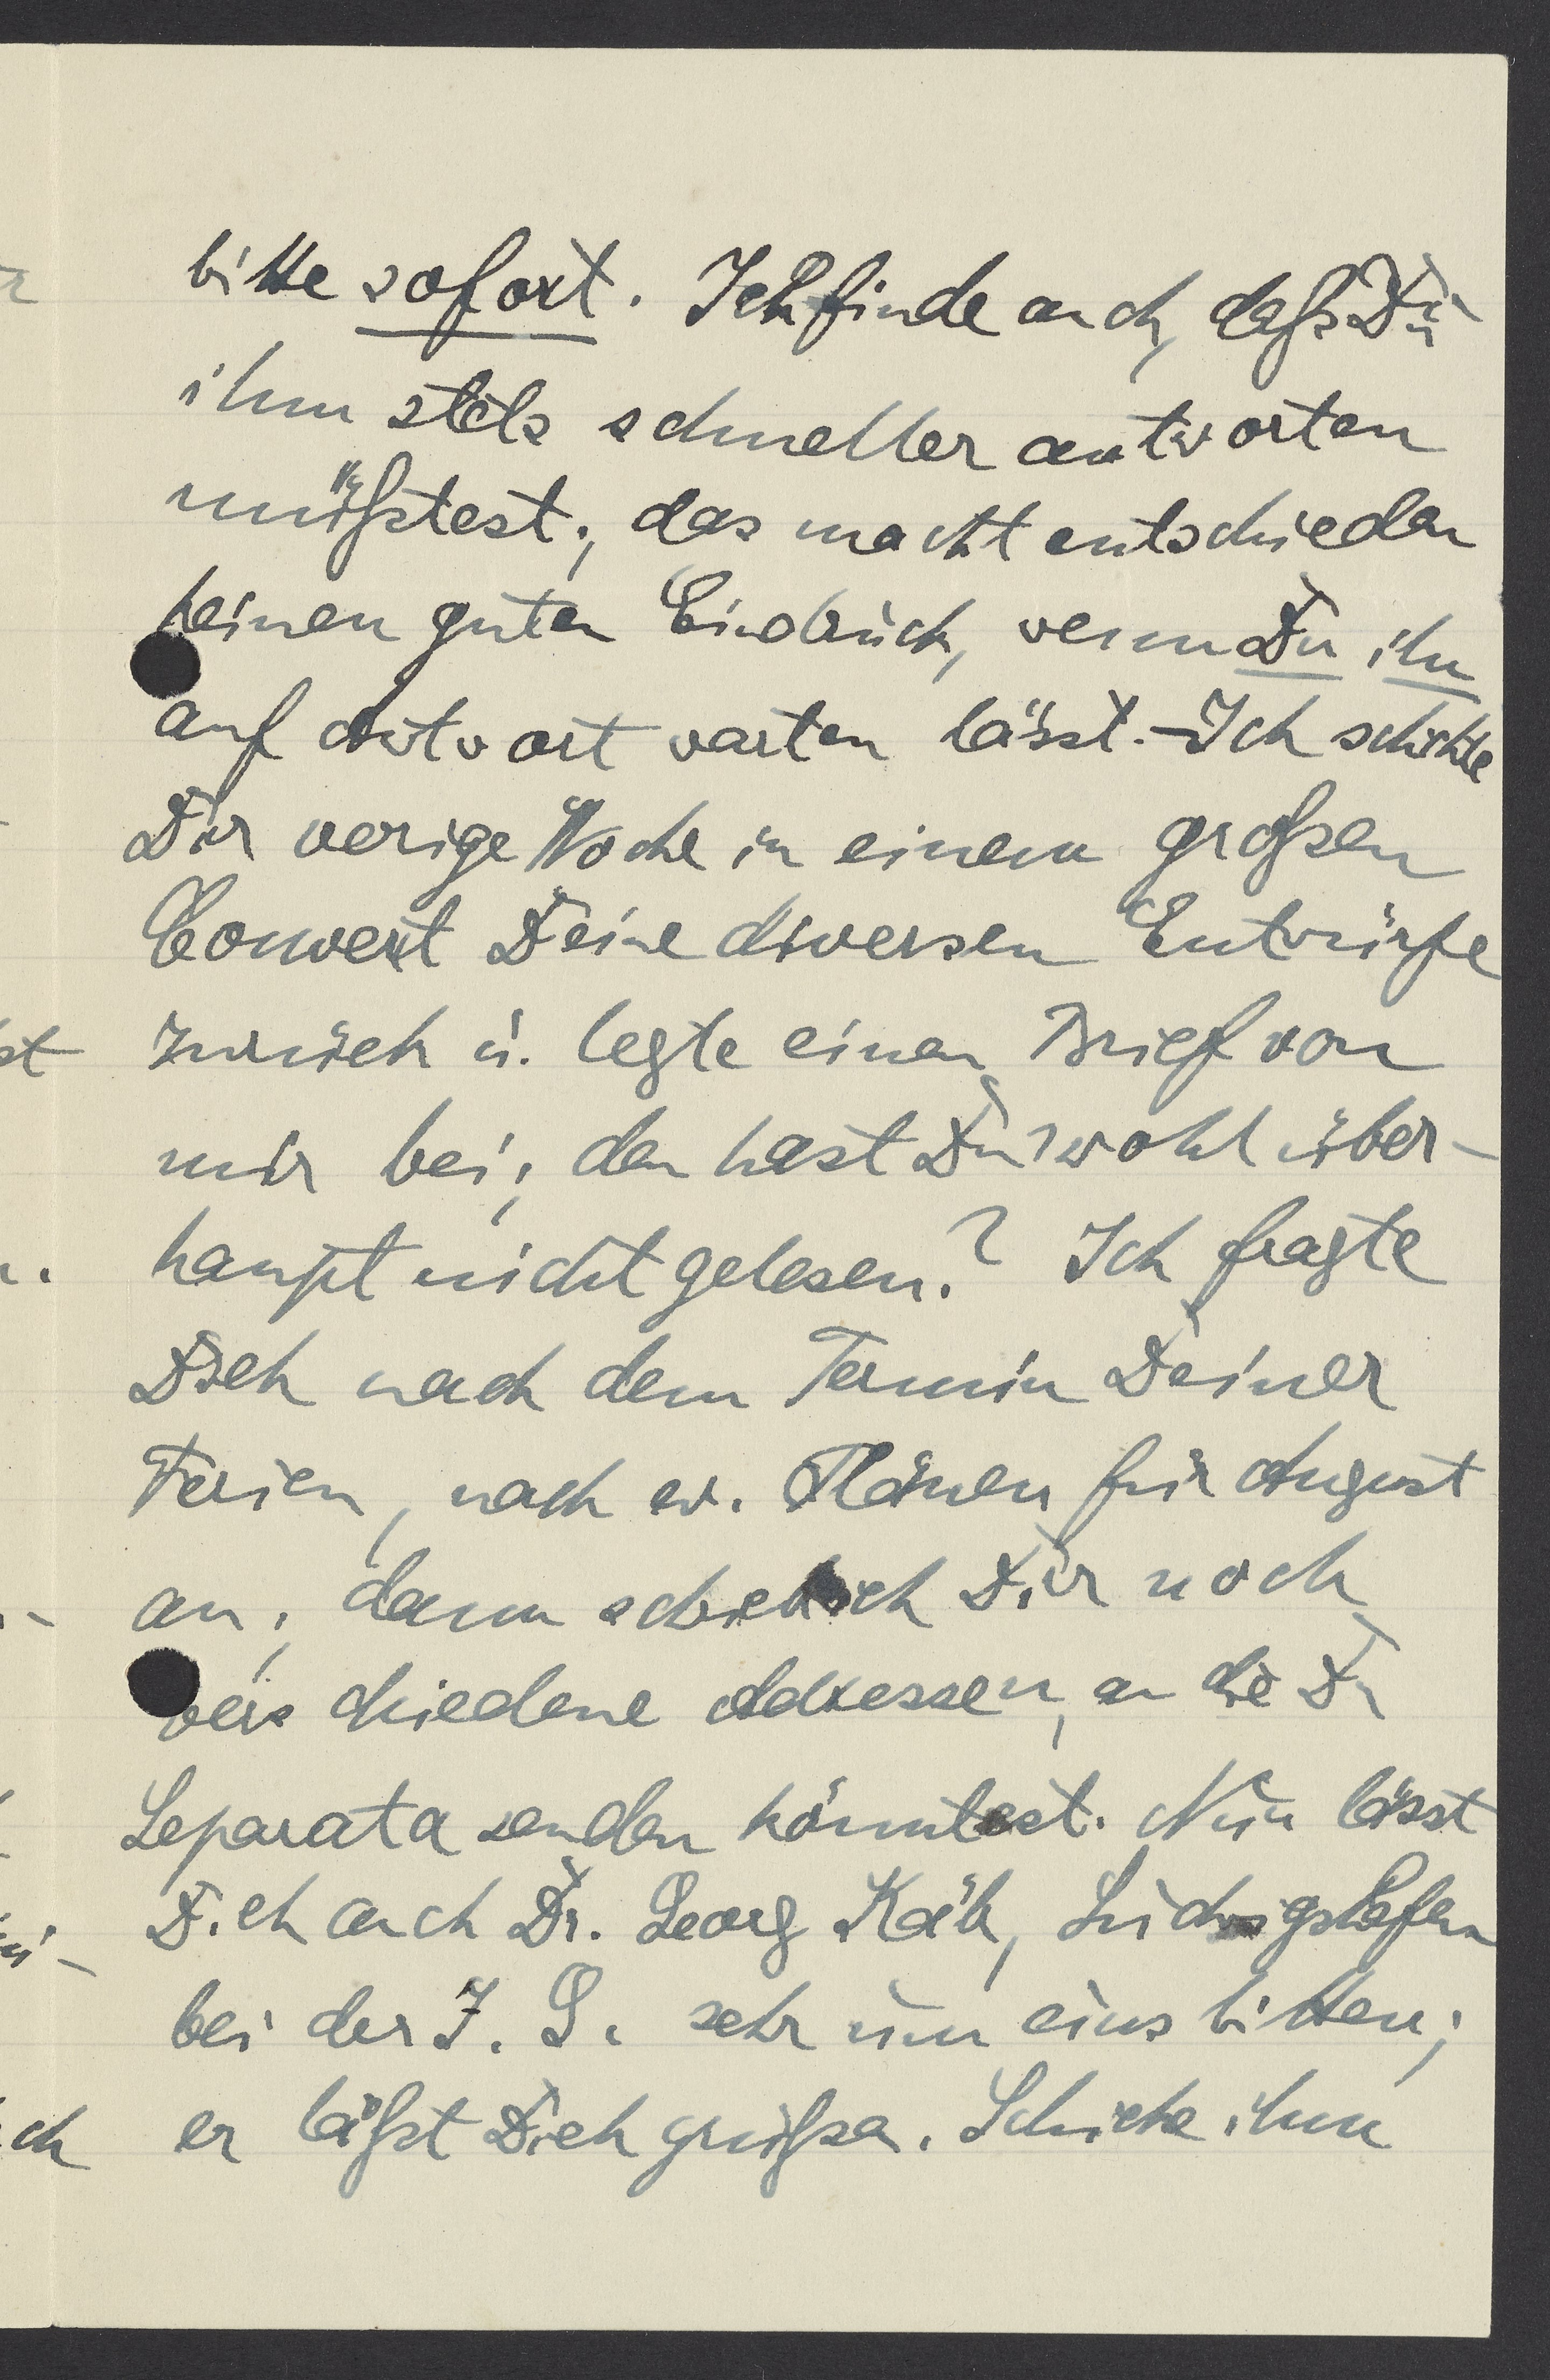 bitte sofort. Ich finde auch, daß Du
ihm stets schneller antworten
müßtest; das macht entschieden
keinen guten Eindruck, wenn Du ihn
auf Antwort warten lässt. - Ich schickte
Dir vorige Woche in einem großen
Couvert Deine diversen Entwürfe
zurück u. legte einen Brief von
mir bei; den hast Du wohl über-
haupt nicht gelesen.? Ich fragte
Dich nach dem Termin Deiner
Ferien, nach ev. Plänen für August
an; dann schrieb ich Dir noch
verschiedene Adressen, an die Du
Separata senden könntest. Nun lässt
Dich auch Dr. Georg Käb, Ludwigshafen
bei der I. G. sehr um eins bitten;
er läßt Dich grüßen. Schicke ihm